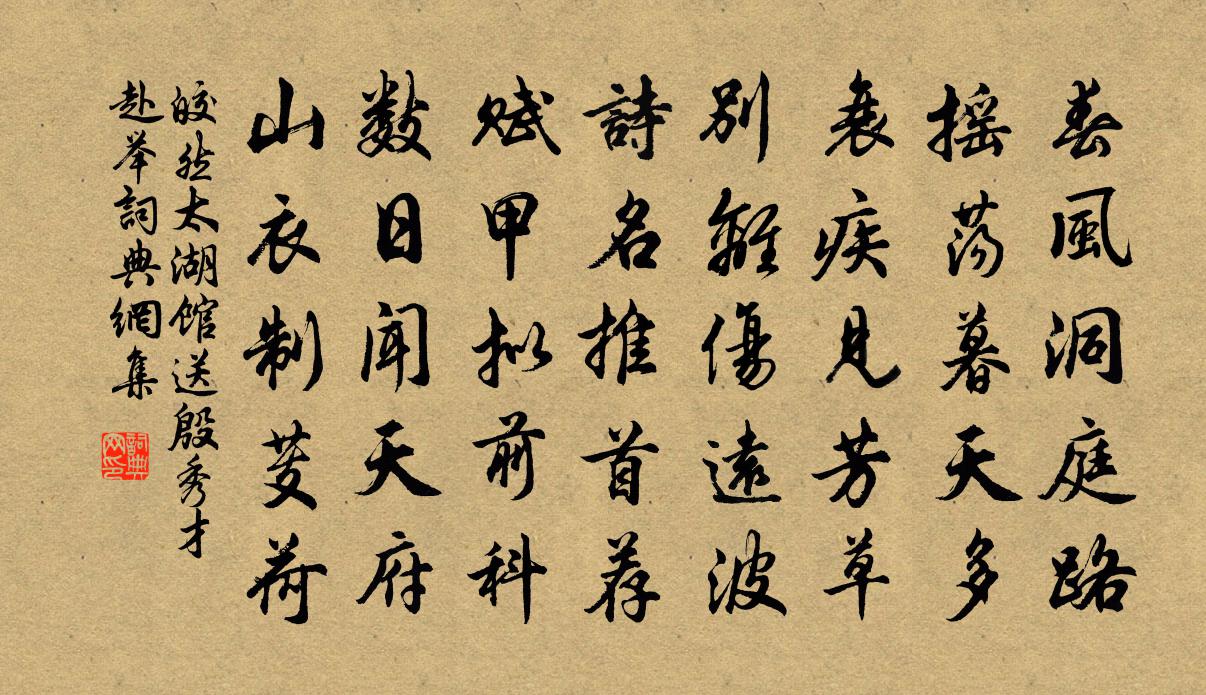 春風洞庭路
摇蕩暮天多
衰疾見芳草
別離傷遠波
詩名推首荐
赋甲拟前科
數日聞天府
山衣制芰荷
皎然太湖館送殷秀才
赴举詞典網集
詞典网印